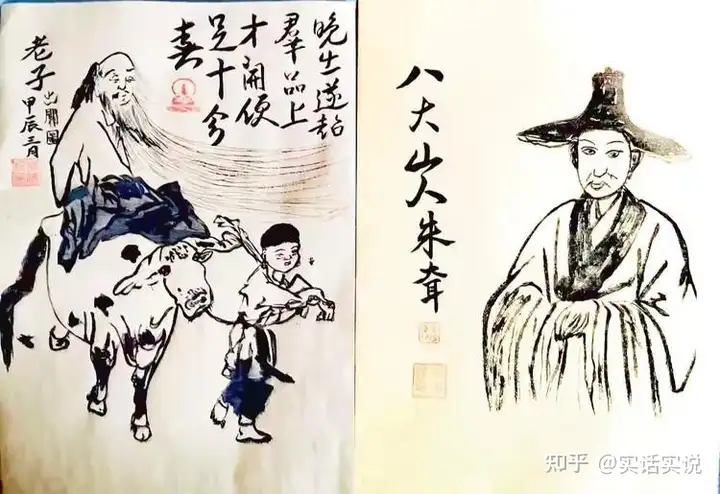 晚生遂超
羣品上
才開便
是十分
春
老子出關圖
甲辰三月
八大山人朱耷
知乎 @实话实说